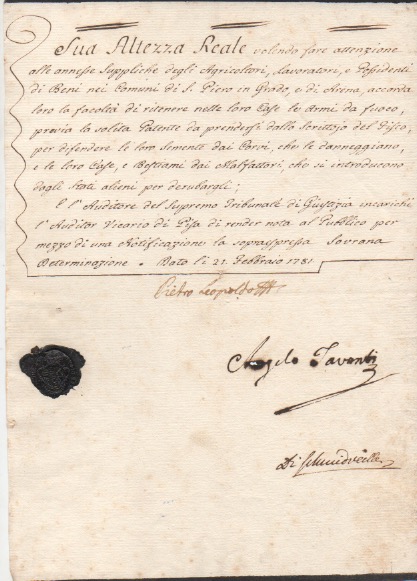 Sua Altezza Reale volendo fare attenzione
alle annesse Suppliche degli Agricoltori, Lavoratori, e Possidenti
di Beni nei Comuni di S. Piero in Grado, e di Arena, accorda
loro la facoltà di ritenere nelle loro Case le Armi da fuoco,
previa la solita Patente da prendersi dallo Scrittojo del Fisco,
per difendere le loro Semente dai Corvi, che le danneggiano,
e le loro Case, e Bestiami dai Malfattori, che si introducono
dagli Stati alieni per derubargli;
E l'Auditore del Supremo Tribunale di Giustizia incarichi
l'Auditor Vicario di Pisa di render nota al Pubblico per
mezzo di una Notificazione la soprespressa Sovrana
Determinazione. Dato li 21. Febbraio 1781.
Pietro Leopoldo
Angelo Tavanti